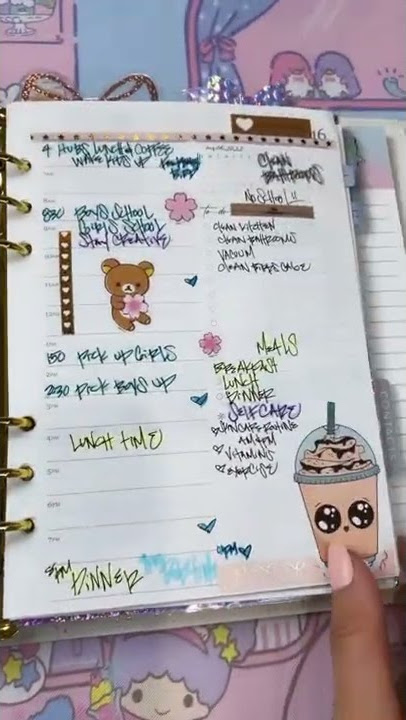 16
4 HUBS LUNCH & COFFEE
WAKE KIDS UP
CLEAN
BATHROOMS
NO SCHOOL!!
830 BOYS SCHOOL
GIRLS SCHOOL
STAY CREATIVE
to-do
CLEAN KITCHEN
CLEAN BATHROOMS
VACUUM
CLEAN
150 PICK UP GIRLS
230 PICK BOYS UP
LUNCH TIME
5PM DINNER
MEALS
BREAKFAST
LUNCH
DINNER
SELFCARE
SKINCARE ROUTINE
AM & PM
VITAMINS
EXERCISE
6PM